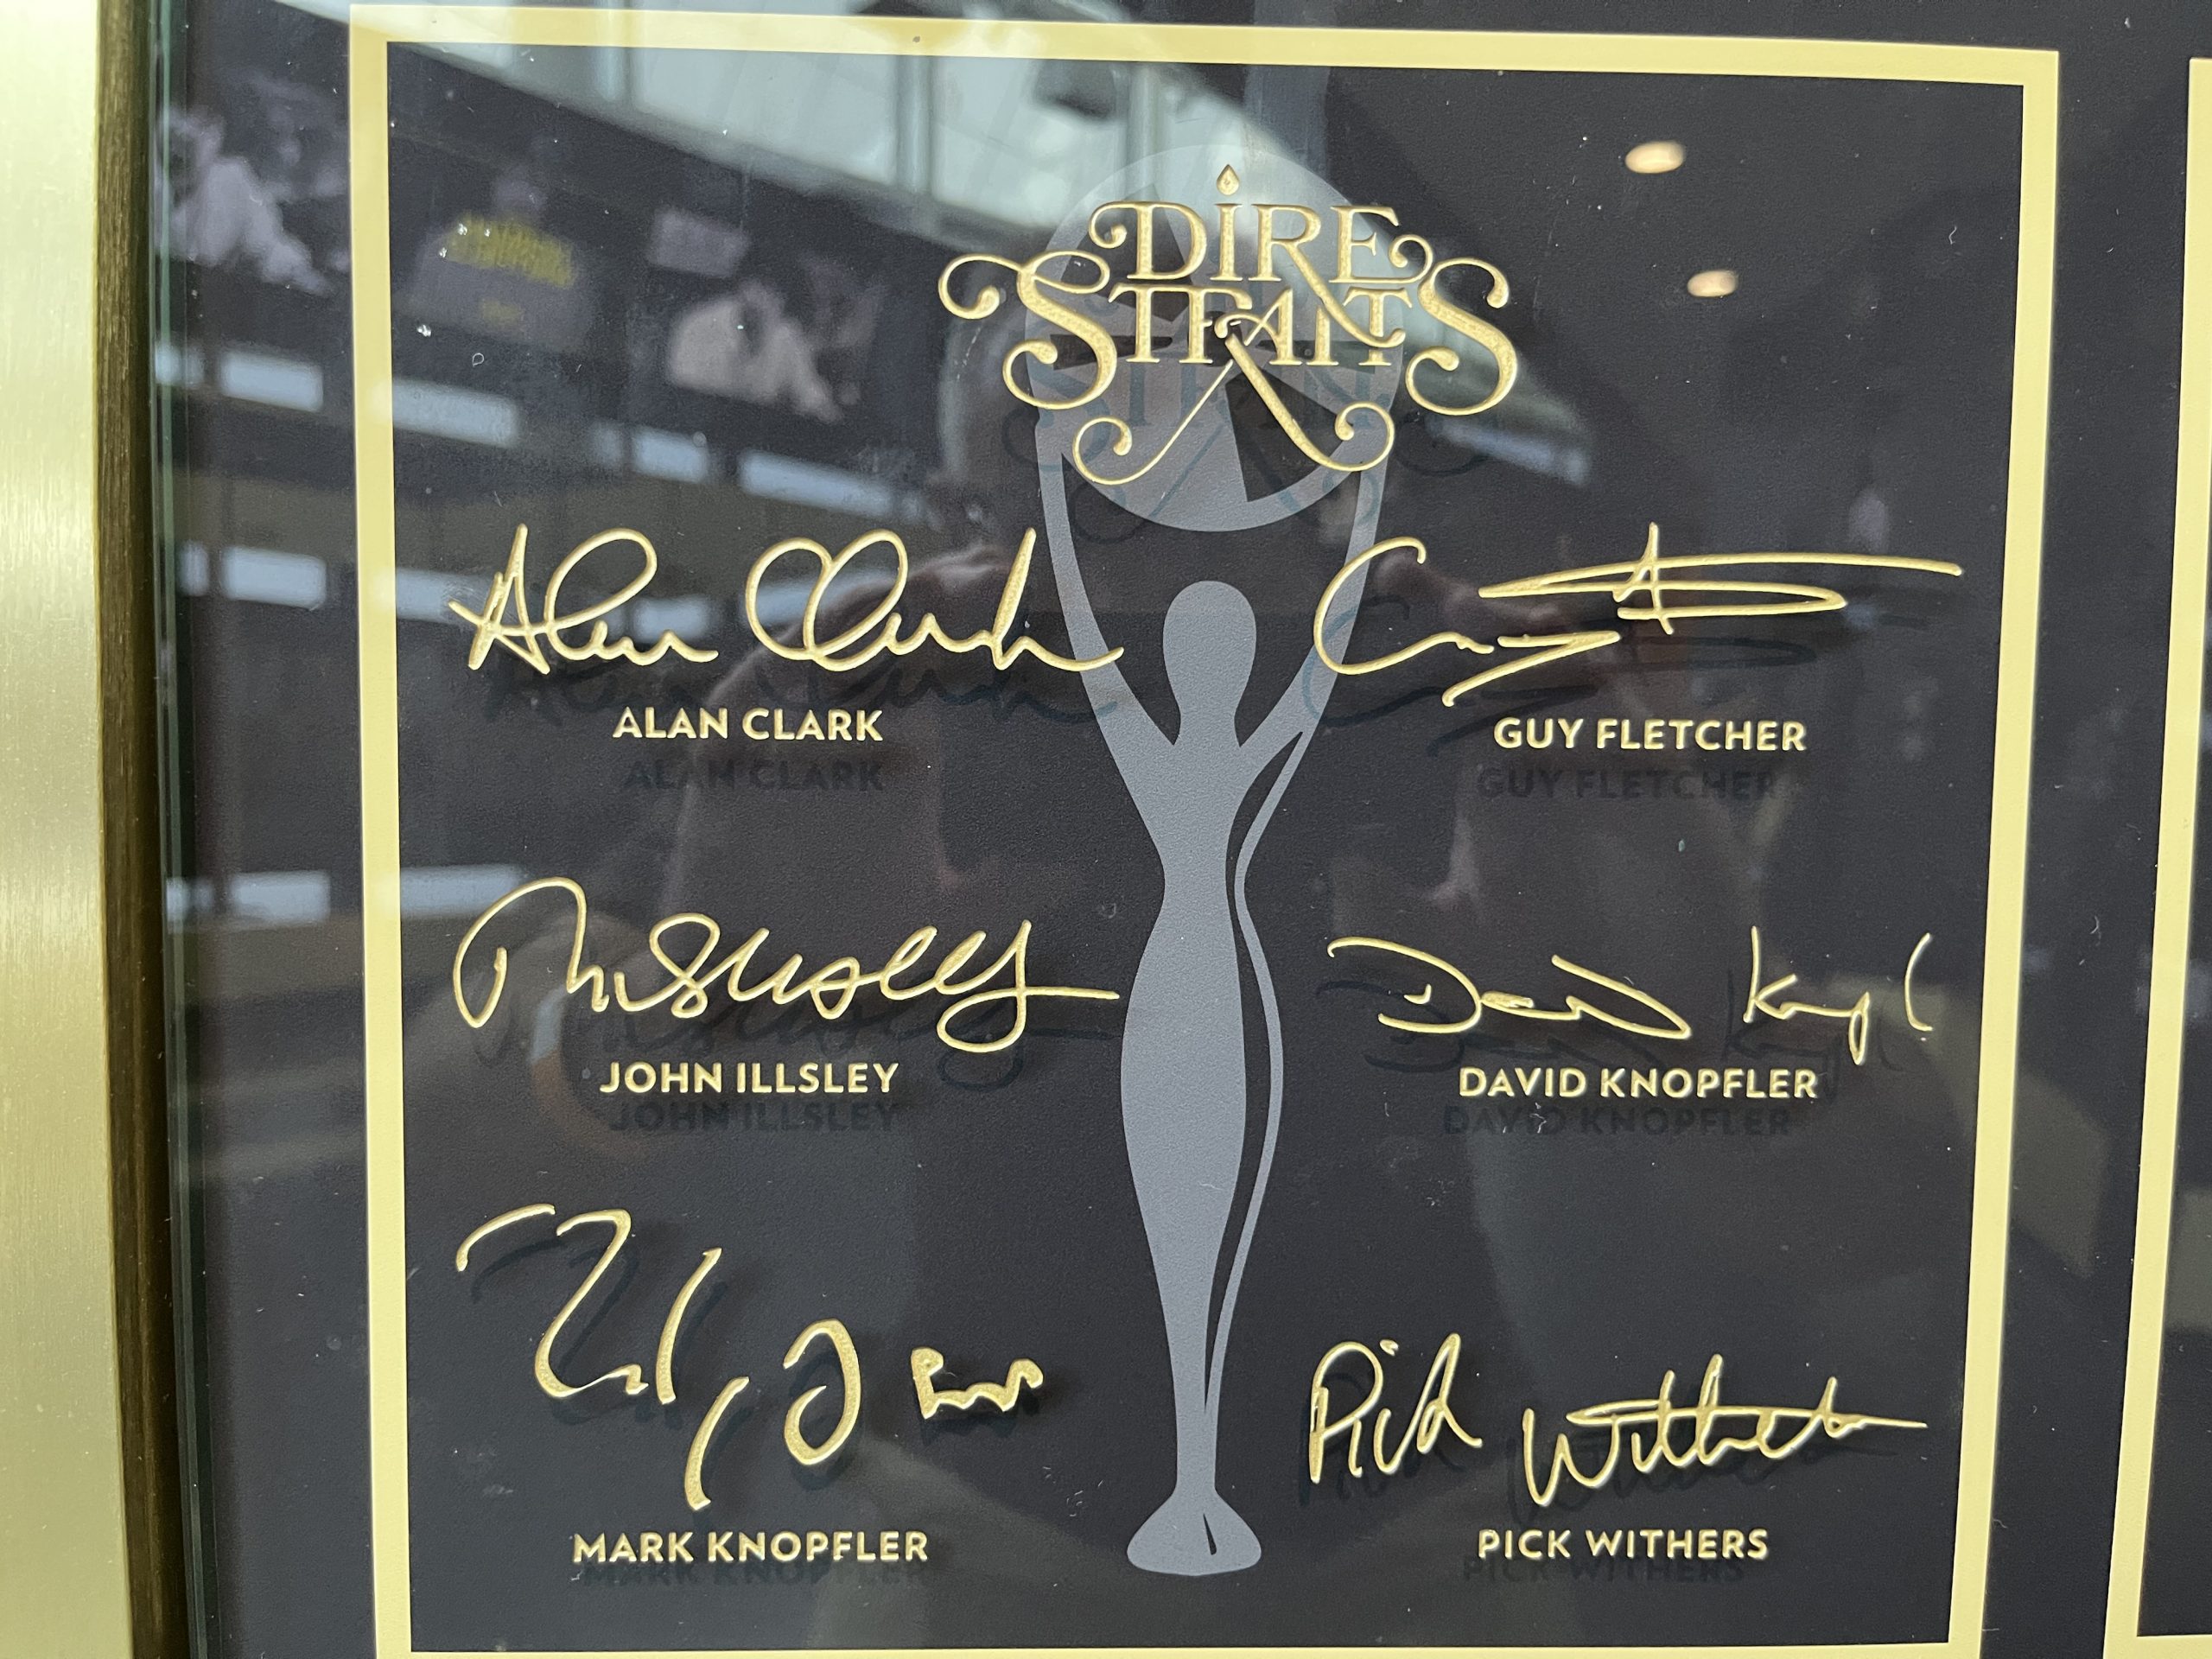 DIRE
STRAITS
Alan Clark
ALAN CLARK
Guy
GUY FLETCHER
Illsley
JOHN ILLSLEY
David Knopf
DAVID KNOPFLER
MARK KNOPFLER
Pick Withers
PICK WITHERS